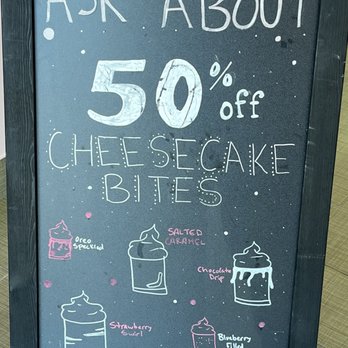 ASK ABOUT
50% off
CHEESECAKE
BITES
Oreo
Speckled
SALTED
CARAMEL
Chocolate
Drip
Strawberry
Swirl
Blueberry
Filled